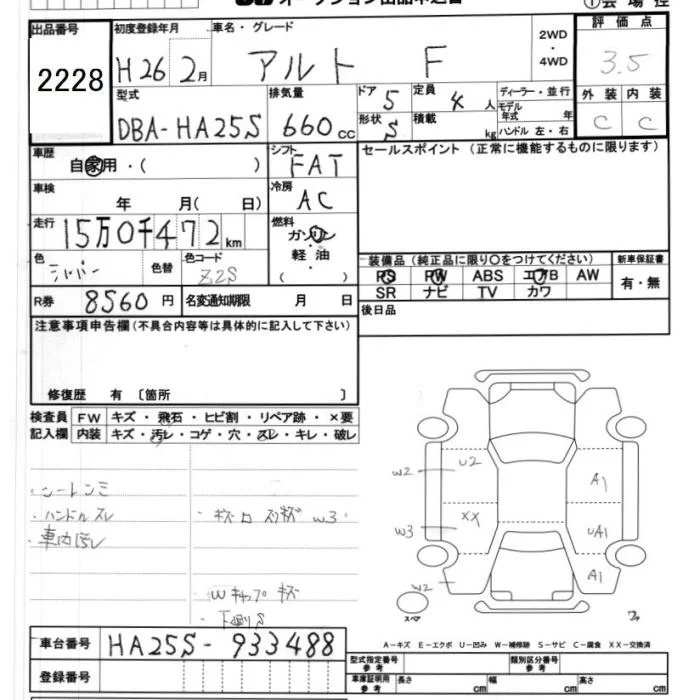 オークション出品申込書
①会場控
出品番号
2228
初度登録年月
H26 2月
車名・グレード
アルト F
2WD
・
4WD
評価点
3.5
外装 内装
C C
型式
DBA-HA25S
排気量
660cc
ドア
5
形状
5
定員
4人
積載
kg
ディーラー・並行
モデル年式 年
ハンドル 左・右
車歴
自家用・( )
シフト
FAT
車検
年 月( 日)
冷房
AC
走行
15万0千472km
燃料
ガソリン
軽・油
( )
色
シルバー
色替
色コード
Z2S
R券
8560円
名変通知期限 月 日
セールスポイント(正常に機能するものに限ります)
装備品(純正品に限り〇をつけてください)
PS PW ABS エアB AW
SR ナビ TV カワ
新車保証書
有・無
後日品
注意事項申告欄(不具合内容等は具体的に記入して下さい)
修復歴 有〔箇所 〕
検査員記入欄
FW キズ・飛石・ヒビ割・リペア跡・×要
内装 キズ・汚レ・コゲ・穴・スレ・キレ・破レ
・シートシミ
・ハンドルスレ
・車内汚レ
W3
Wキャップキズ
・下廻S
W2 U2
A1
W3 XX
UA1
W2
A1
スペア
A-キズ E-エクボ U-凹み W-補修跡 S-サビ C-腐食 XX-交換済
車台番号
HA25S-933488
登録番号
型式指定番号
参考
類別区分番号
参考
車庫証明用
参考
長さ cm 幅 cm 高さ cm